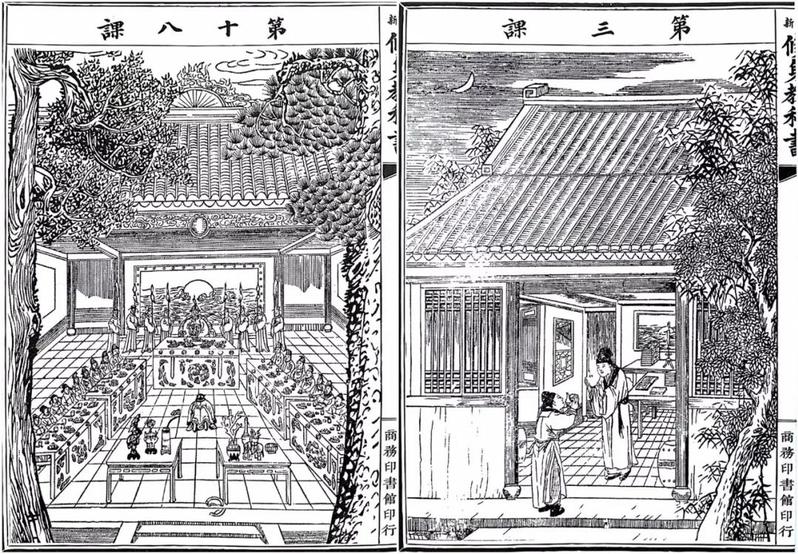 新修身教科書
商務印書館印行
第三課
新修身教科書
商務印書館印行
第十八課